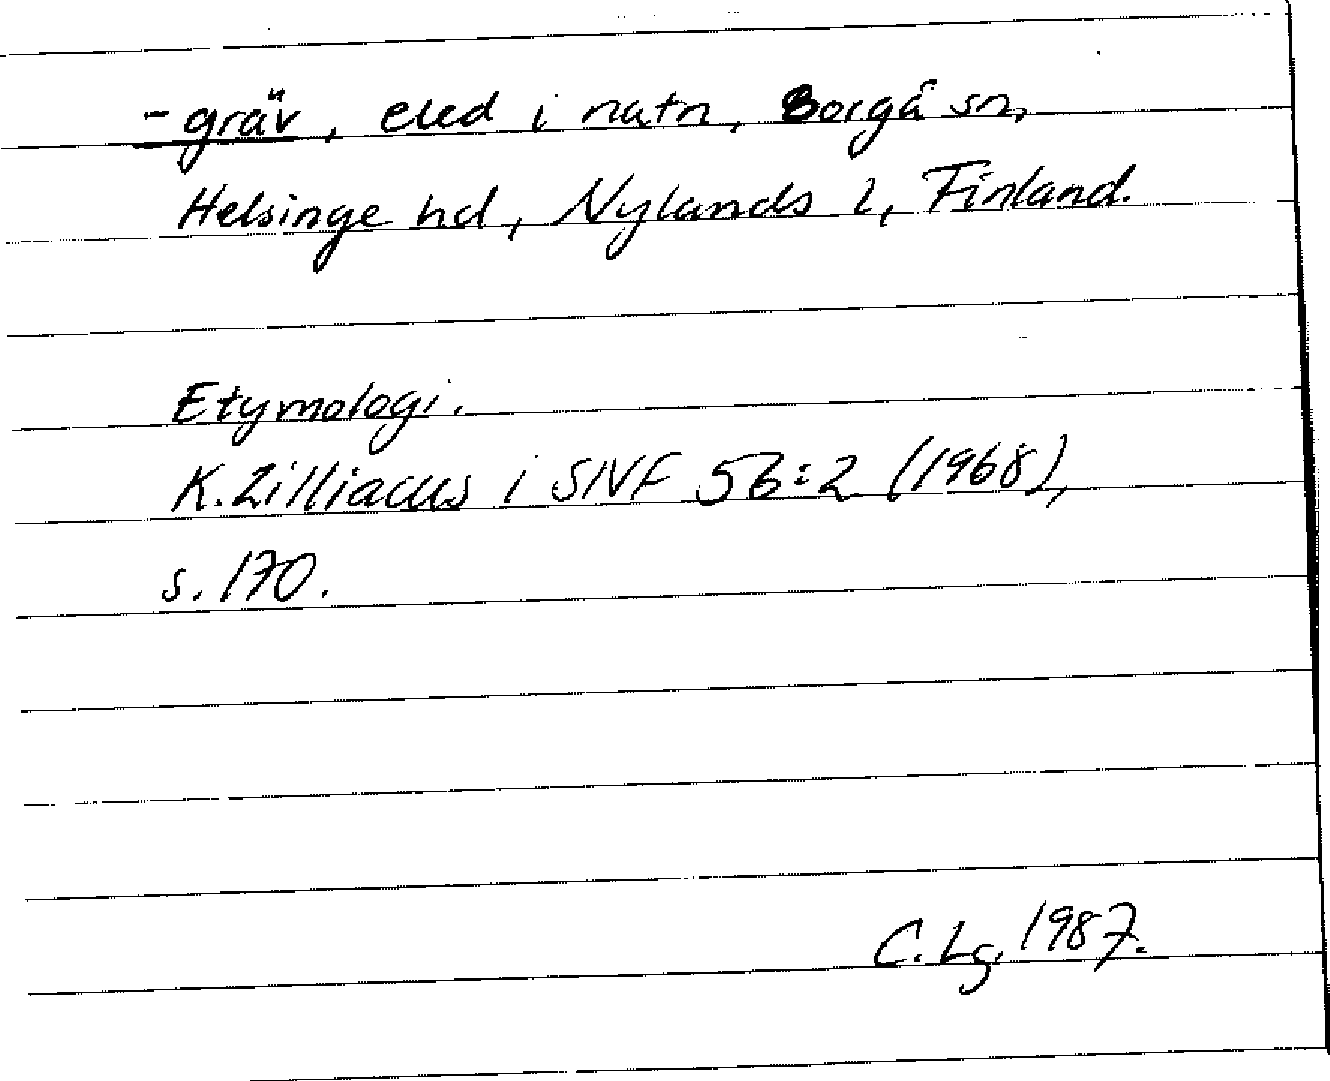 -gräv, eled i natn, Borgå sn,
Helsinge hd, Nylands l, Finland.
Etymologi.
K. Zilliacus i SNF 56:2 (1968),
s. 170.
C. Lg. 1987.